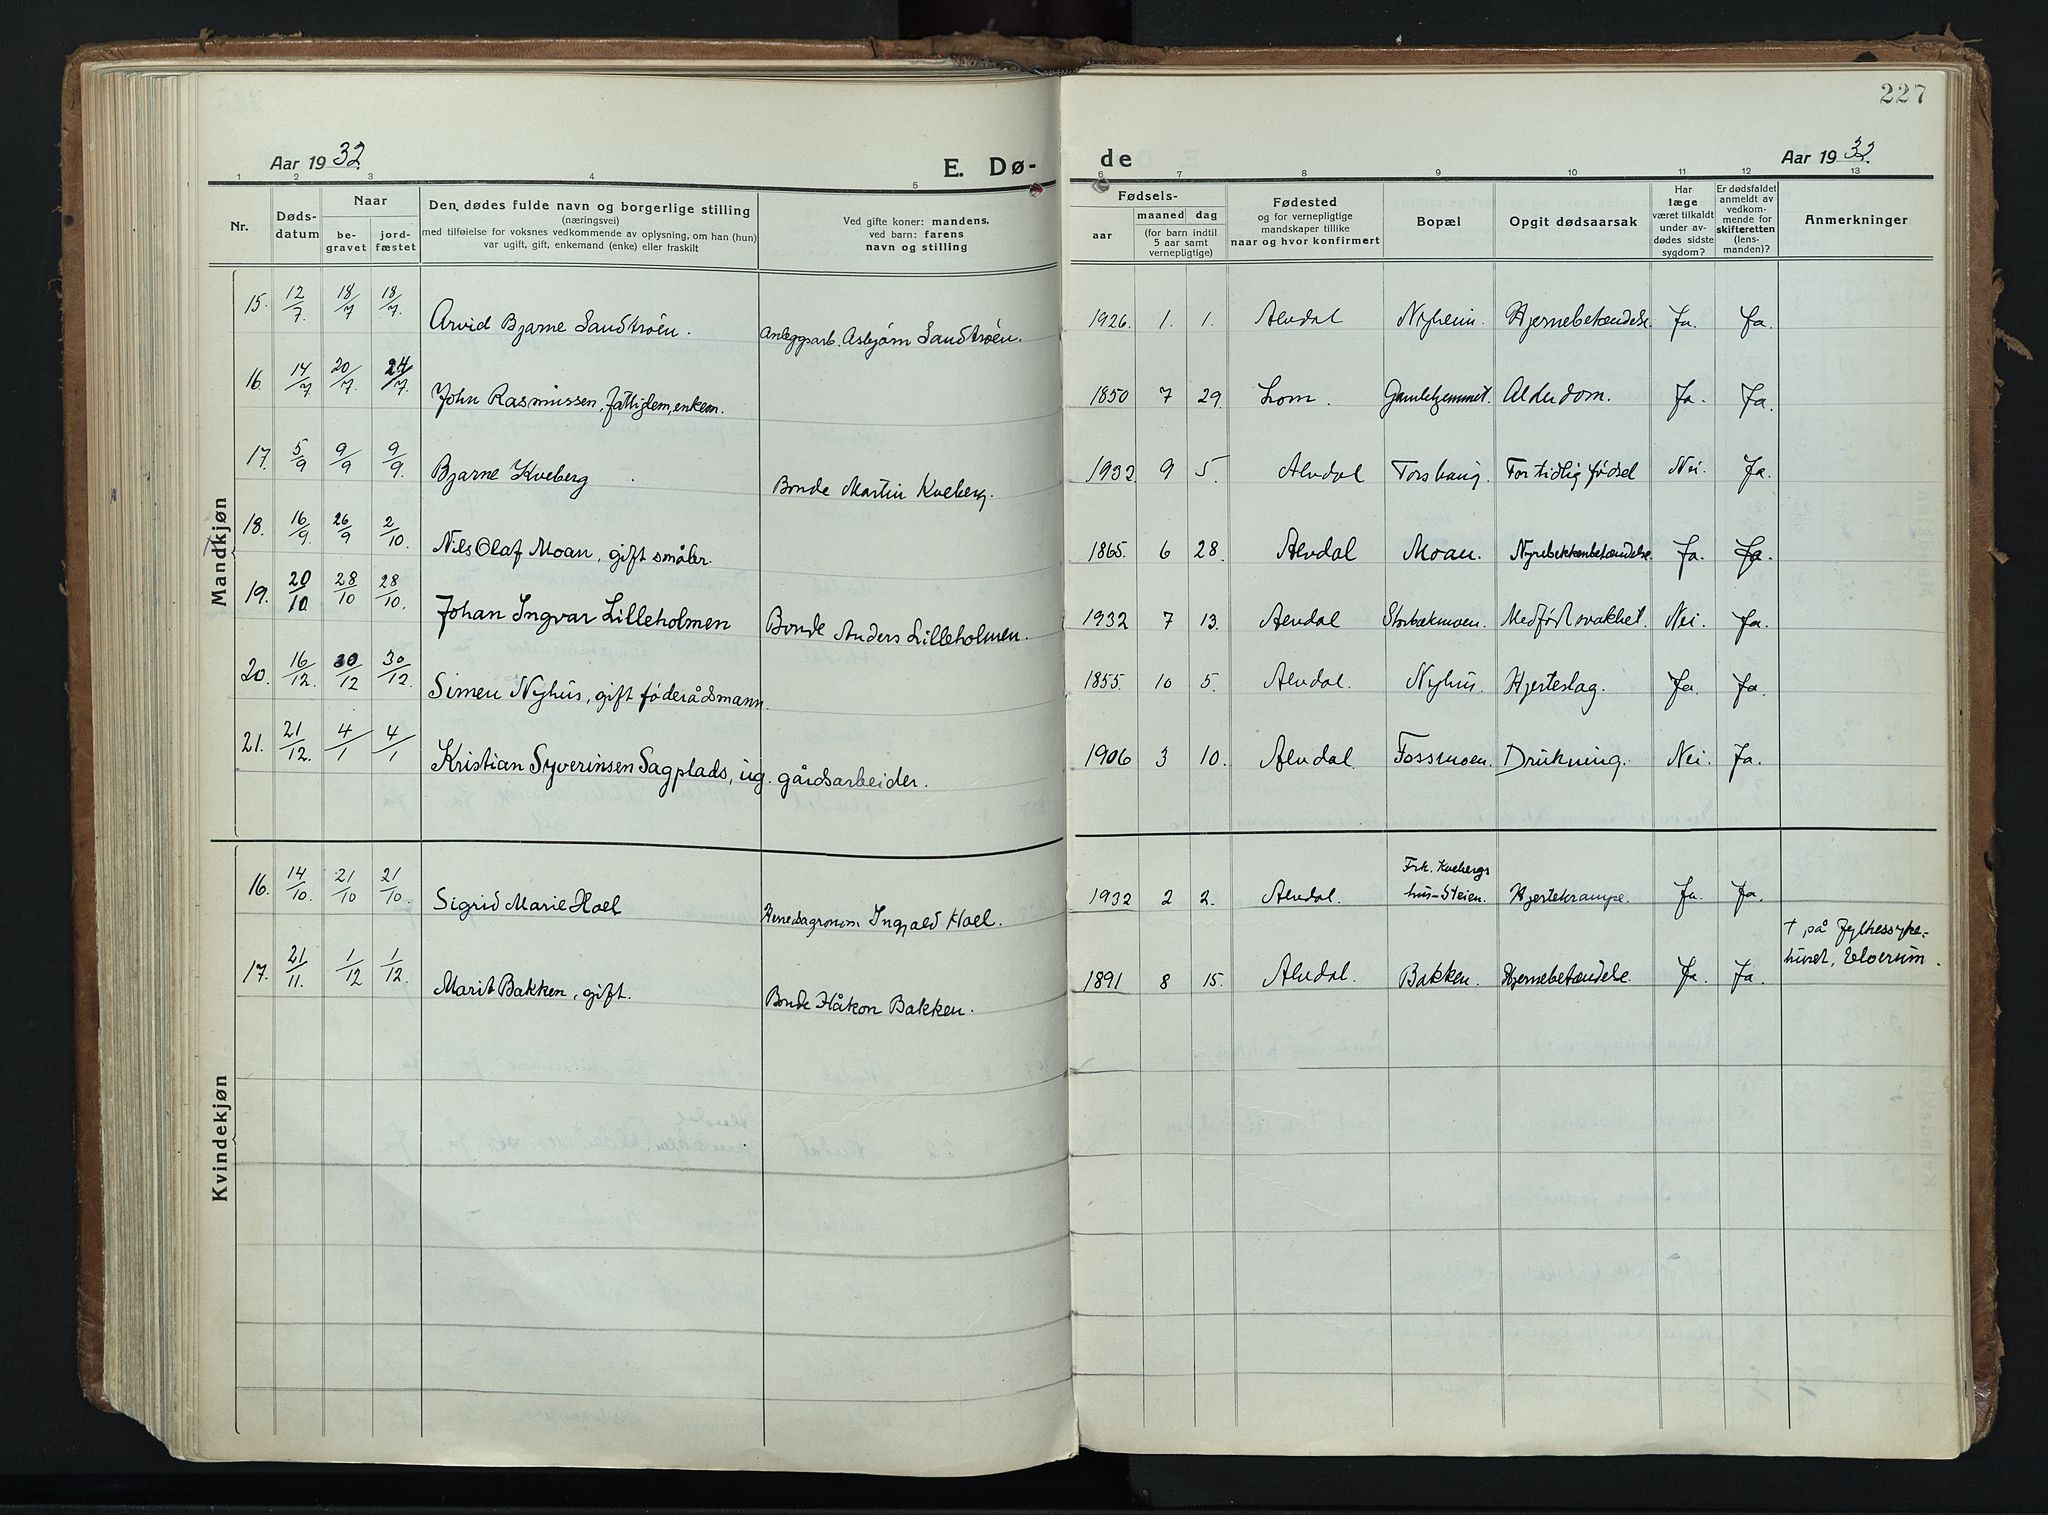 227
Aar 1932.
E. Dø-
de
Aar 1932.
1 2 3 4 5 6 7 8 9 10 11 12 13
Nr.
Døds-
datum
Naar
be-
gravet
jord-
fæstet
Den dødes fulde navn og borgerlige stilling
(næringsvei)
med tilføielse for voksnes vedkommende av oplysning, om han (hun)
var ugift, gift, enkemand (enke) eller fraskilt
Ved gifte koner: mandens,
ved barn: farens
navn og stilling
Fødsels-
aar
maaned dag
(for barn indtil
5 aar samt
vernepligtige)
Fødested
og for vernepligtige
mandskaper tillike
naar og hvor konfirmert
Bopæl
Opgit dødsaarsak
Har
læge
været tilkaldt
under av-
dødes sidste
sygdom?
Er dødsfaldet
anmeldt av
vedkom-
mende for
skifteretten
(lens-
manden)?
Anmerkninger
Mandkjøn
15. 12/7. 18/7 18/7. Arvid Bjarne Sandtrøen. Anleggsarb. Asbjørn Sandtrøen. 1926. 1. 1. Alvdal Nyheim. Hjernebetændelse. Ja. Ja.
16. 14/7 20/7. 24/7. John Rasmussen, fattiglem, enkem. 1850 7 29. Lom. Gamlehjemmet. Alderdom. Ja. Ja.
17. 5/9 9/9 9/9. Bjarne Kveberg Bonde Martin Kveberg. 1932 9 5. Alvdal Torshaug. For tidlig fødsel Nei. Ja.
18. 16/9. 26/9 2/10 Nils Olaf Moan, gift småbr. 1865. 6 28. Alvdal Moan. Nyrebekkenbetændelse. Ja. Ja.
19. 20/10. 28/10 28/10. Johan Ingvar Lilleholmen Bonde Anders Lilleholmen. 1932 7 13. Alvdal Storbækmoen. Medfødt svakhet. Nei. Ja.
20. 16/12. 30/12 30/12. Simen Nyhus, gift føderådsmann. 1855. 10 5. Alvdal. Nyhus. Hjerteslag. Ja. Ja.
21. 21/12. 4/1 4/1 Kristian Syverinsen Sagplads, ug. gårdsarbeider. 1906 3 10. Alvdal. Fossmoen. Drukning. Nei. Ja.
Kvindekjøn
16. 14/10. 21/10 21/10. Sigrid Marie Hoel Herredsagronom Ingjald Hoel. 1932 2 2. Alvdal. Frk. Kvebergs
hus-Steien. Hjertekrampe. Ja. Ja.
17. 21/11. 1/12 1/12. Marit Bakken, gift. Bonde Håkon Bakken. 1891 8 15. Alvdal. Bakken. Hjernebetændelse Ja. Ja. † på Fylkessyke-
huset, Elverum.